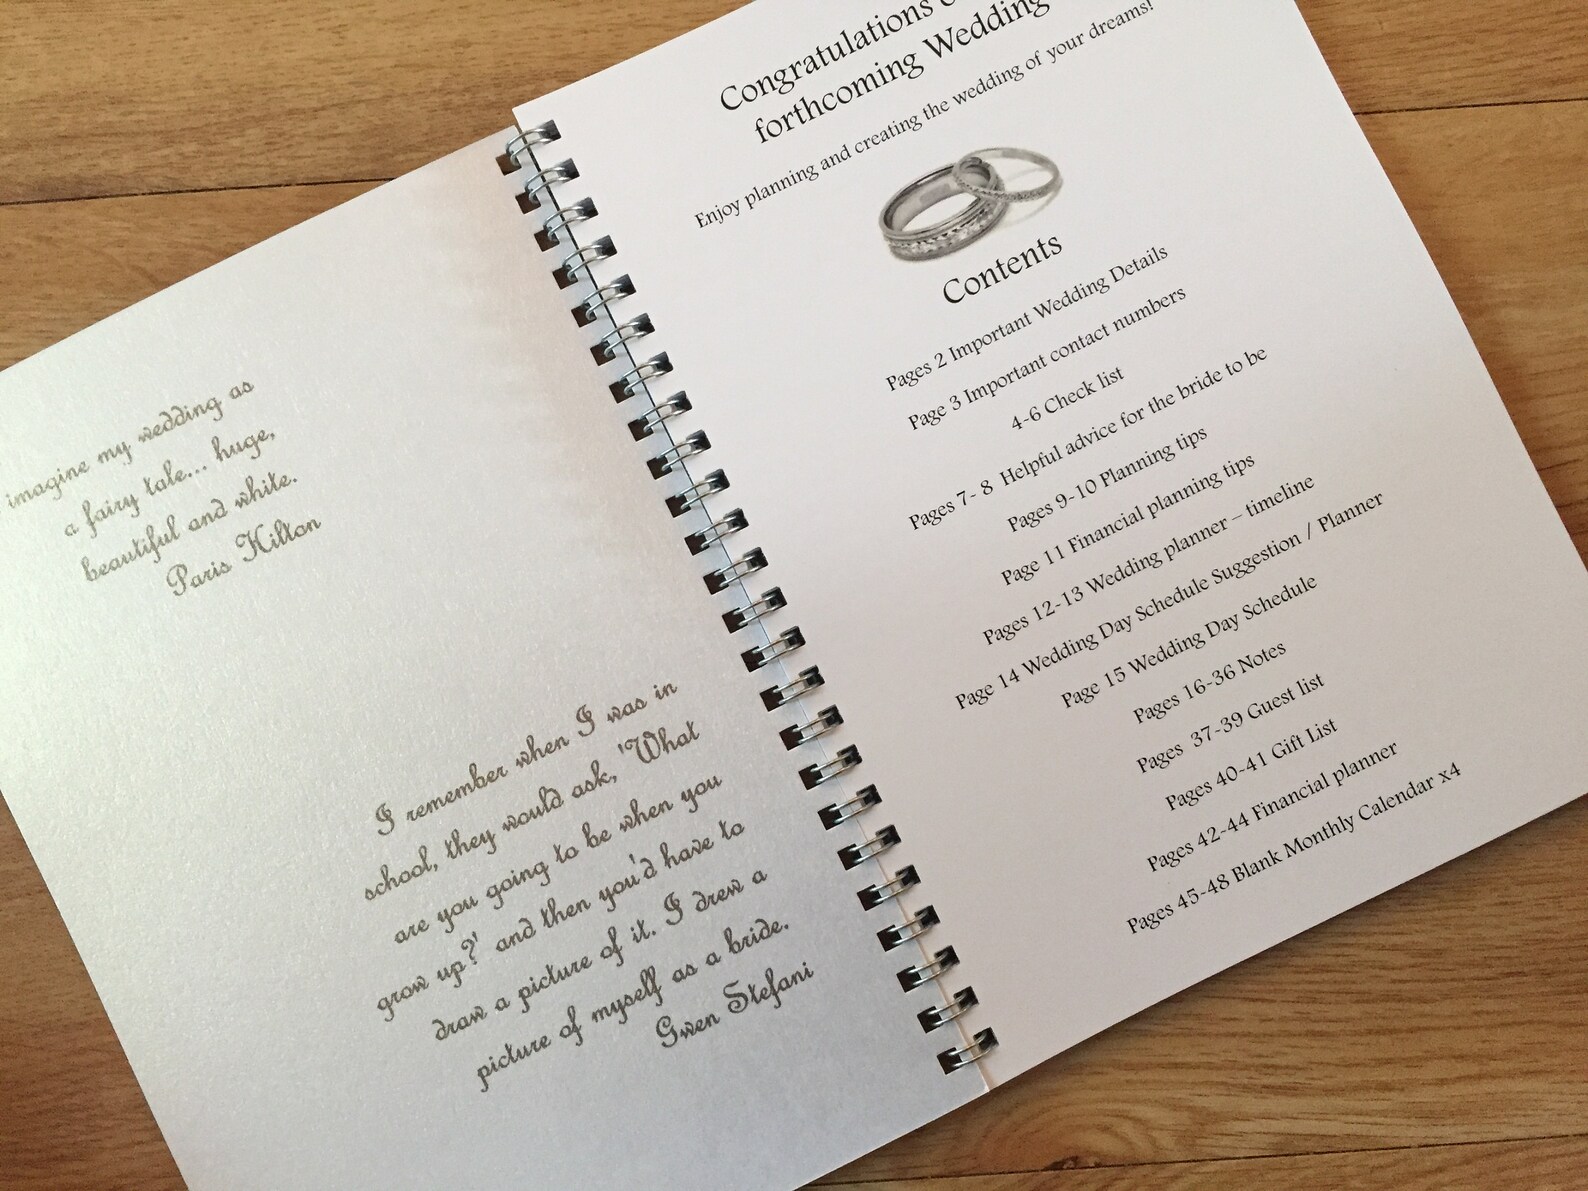 imagine my wedding as
a fairy tale... huge,
beautiful and white.
Paris Hilton
I remember when I was in
school, they would ask, 'What
are you going to be when you
grow up?' and then you'd have to
draw a picture of it. I drew a
picture of myself as a bride.
Gwen Stefani
Congratulations
forthcoming Wedding
Enjoy planning and creating the wedding of your dreams!
Contents
Pages 2 Important Wedding Details
Page 3 Important contact numbers
4-6 Check list
Pages 7- 8 Helpful advice for the bride to be
Pages 9-10 Planning tips
Page 11 Financial planning tips
Pages 12-13 Wedding planner – timeline
Page 14 Wedding Day Schedule Suggestion / Planner
Page 15 Wedding Day Schedule
Pages 16-36 Notes
Pages 37-39 Guest list
Pages 40-41 Gift List
Pages 42-44 Financial planner
Pages 45-48 Blank Monthly Calendar x4